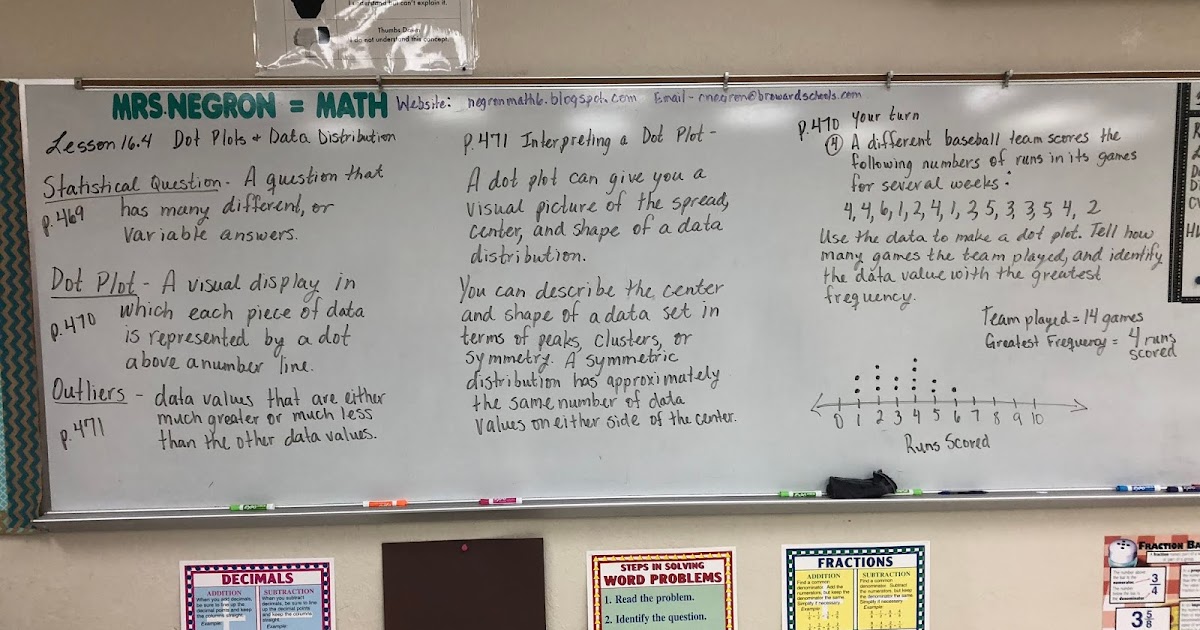 I understand but can't explain it.
Thumbs Down
I do not understand this concept.
MRS. NEGRON = MATH
Website: negronmath6.blogspot.com Email - cnegron@browardschools.com
Lesson 16.4 Dot Plots & Data Distribution
Statistical Question - A question that
p.469 has many different, or
variable answers.
Dot Plot - A visual display in
p.470 which each piece of data
is represented by a dot
above a number line.
Outliers - data values that are either
much greater or much less
p.471 than the other data values.
p.471 Interpreting a Dot Plot -
A dot plot can give you a
visual picture of the spread,
center, and shape of a data
distribution.
You can describe the center
and shape of a data set in
terms of peaks, clusters, or
symmetry. A symmetric
distribution has approximately
the same number of data
values on either side of the center.
p.470 your turn
④ A different baseball team scores the
following numbers of runs in its games
for several weeks:
4, 4, 6, 1, 2, 4, 1, 2, 5, 3, 3, 5, 4, 2
Use the data to make a dot plot. Tell how
many games the team played, and identify
the data value with the greatest
frequency.
Team played = 14 games
Greatest Frequency = 4 runs
scored
0 1 2 3 4 5 6 7 8 9 10
Runs Scored
DECIMALS
ADDITION
When you add decimals,
be sure to line up the
decimal points and keep
the columns straight.
Example:
SUBTRACTION
When you subtract
decimals, be sure to line
up the decimal points
and keep the columns
straight.
Example:
STEPS IN SOLVING
WORD PROBLEMS
1. Read the problem.
2. Identify the question.
FRACTIONS
ADDITION
Find a common
denominator. Add the
numerators, but keep the
denominator the same.
Simplify if necessary.
Example:
SUBTRACTION
Find a common
denominator. Subtract
the numerators, but keep
the denominator the same.
Simplify if necessary.
Example:
FRACTION BA
3
4
3 5
8